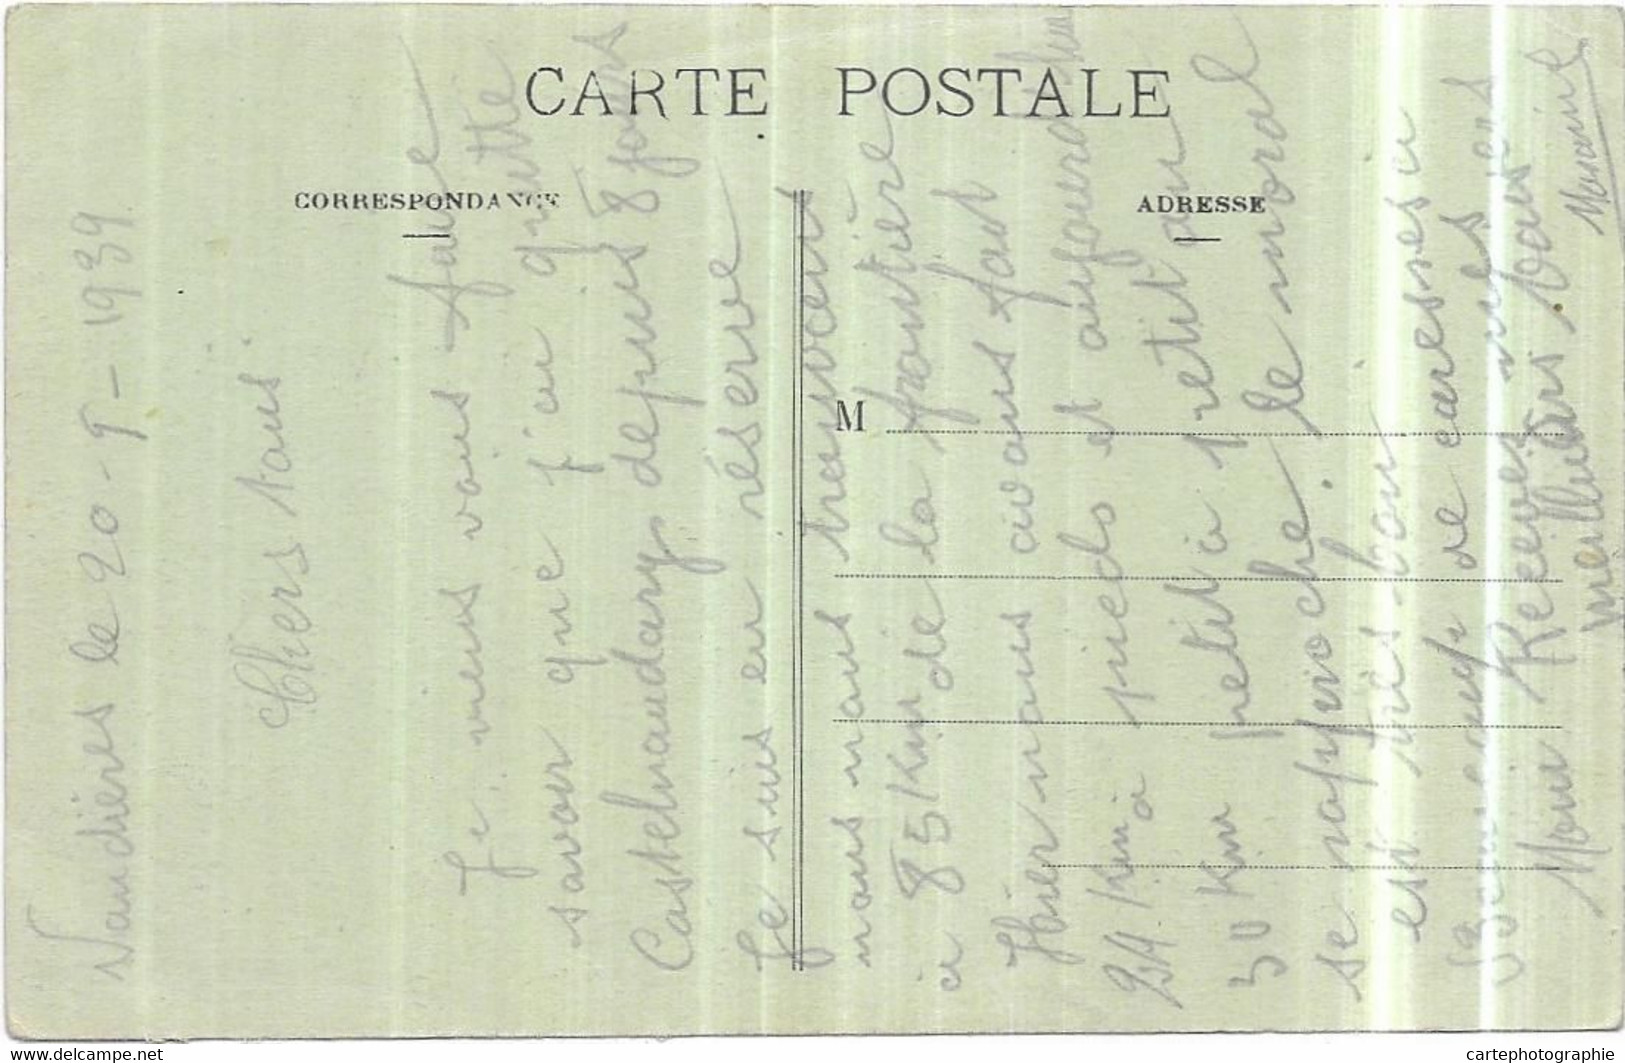 CARTE POSTALE
CORRESPONDANCE
ADRESSE
M
Vandières le 20-9-1939
Chers tous.
Je viens vous faire
savoir que j'ai quitté
Castelnaudary depuis 8 jours
Je suis en réserve
nous nous trouvons
à 85 Km de la frontière
Hier nous avons fait
24 Km à pieds et aujourd'hui
30 Km petit à petit on
se rapproche. le moral
est très bon
Beaucoup de caresses à
Mimi Recevez mes
meilleurs baisers
www.delcampe.net
cartephotographie